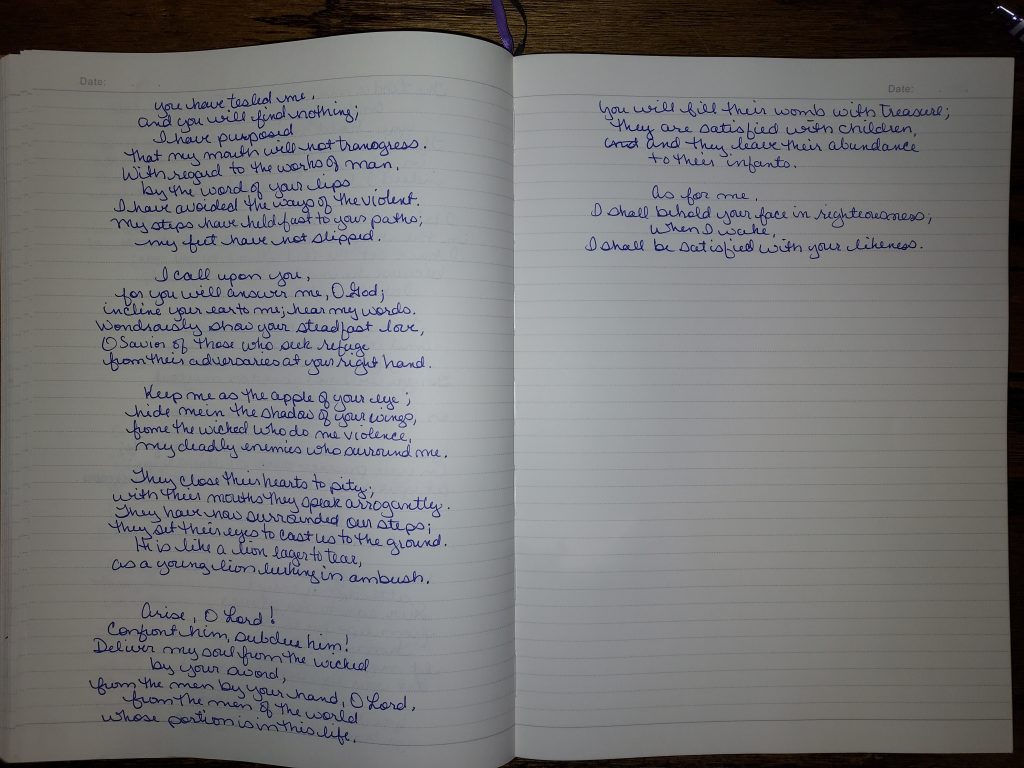 Date:
you have tested me,
and you will find nothing;
I have purposed
that my mouth will not transgress.
With regard to the works of man,
by the word of your lips
I have avoided the ways of the violent.
My steps have held fast to your paths;
my feet have not slipped.
I call upon you,
for you will answer me, O God;
incline your ear to me; hear my words.
Wondrously show your steadfast love,
O Savior of those who seek refuge
from their adversaries at your right hand.
Keep me as the apple of your eye;
hide me in the shadow of your wings,
frome the wicked who do me violence,
my deadly enemies who surround me.
They close their hearts to pity;
with their mouths they speak arrogantly.
They have now surrounded our steps;
they set their eyes to cast us to the ground.
He is like a lion eager to tear,
as a young lion lurking in ambush.
Arise, O Lord!
Confront him, subdue him!
Deliver my soul from the wicked
by your sword,
from the men by your hand, O Lord,
from the men of the world
whose portion is in this life.
Date:
You will fill their womb with treasure;
they are satisfied with children,
and and they leave their abundance
to their infants.
As for me,
I shall behold your face in righteousness;
when I wake,
I shall be satisfied with your likeness.